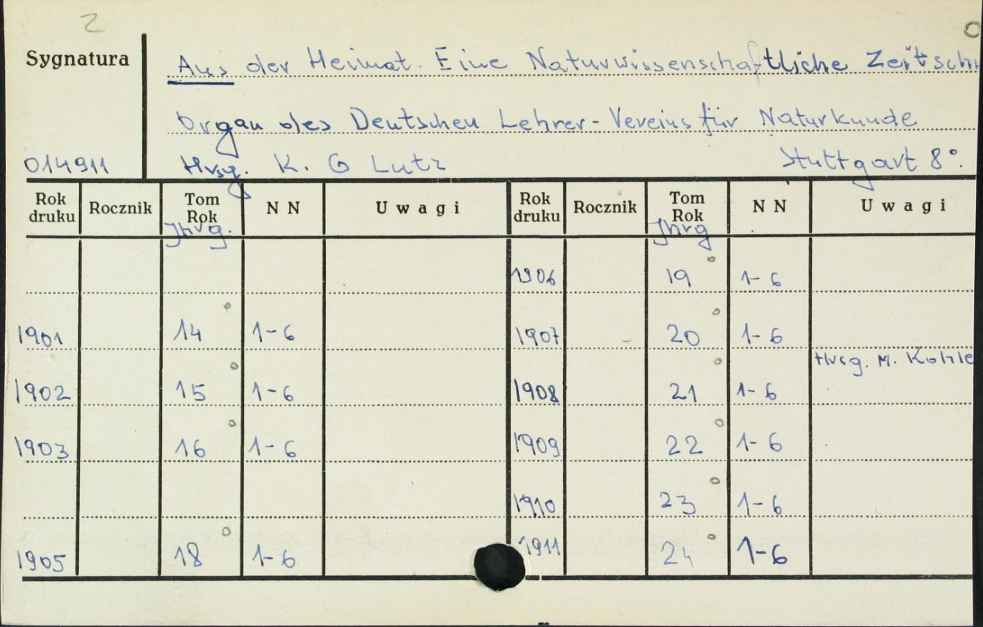 2
Sygnatura
Aus der Heimat. Eine Naturwissenschaftliche
Organ des Deutschen Lehrer-Vereins für Naturkunde
014911 Hrsg. K. G Lutz Stuttgart 8°.
Rok druku Rocznik Tom Rok N N Uwagi Rok druku Rocznik Tom Rok N N Uwagi
Jhrg. Jhrg
1906 19 1-6
1901 14 1-6 1907 20 1-6
Hrsg. M.
1902 15 1-6 1908 21 1-6
1903 16 1-6 1909 22 1-6
1910 23 1-6
1905 18 1-6 1911 24 1-6